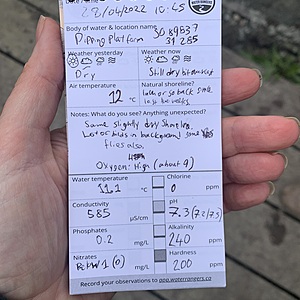 28/04/2022 10:45
Body of water & location name SO 89537
Dipping Platform 31 285
Weather yesterday Weather now
Dry Still dry bit
Air temperature Natural shoreline?
12 °C
Notes: What do you see? Anything unexpected?
Same slightly dry Shoreline,
Lot of birds in background some
flies also,
Oxygen: High (about 9)
Water temperature Chlorine
11.1 °C 0 ppm
Conductivity pH
585 µS/cm 7.3 (7.2/7.5)
Phosphates Alkalinity
0.2 mg/L 240 ppm
Nitrates Hardness
(0) mg/L 200 ppm
Record your observations to app.waterrangers.ca